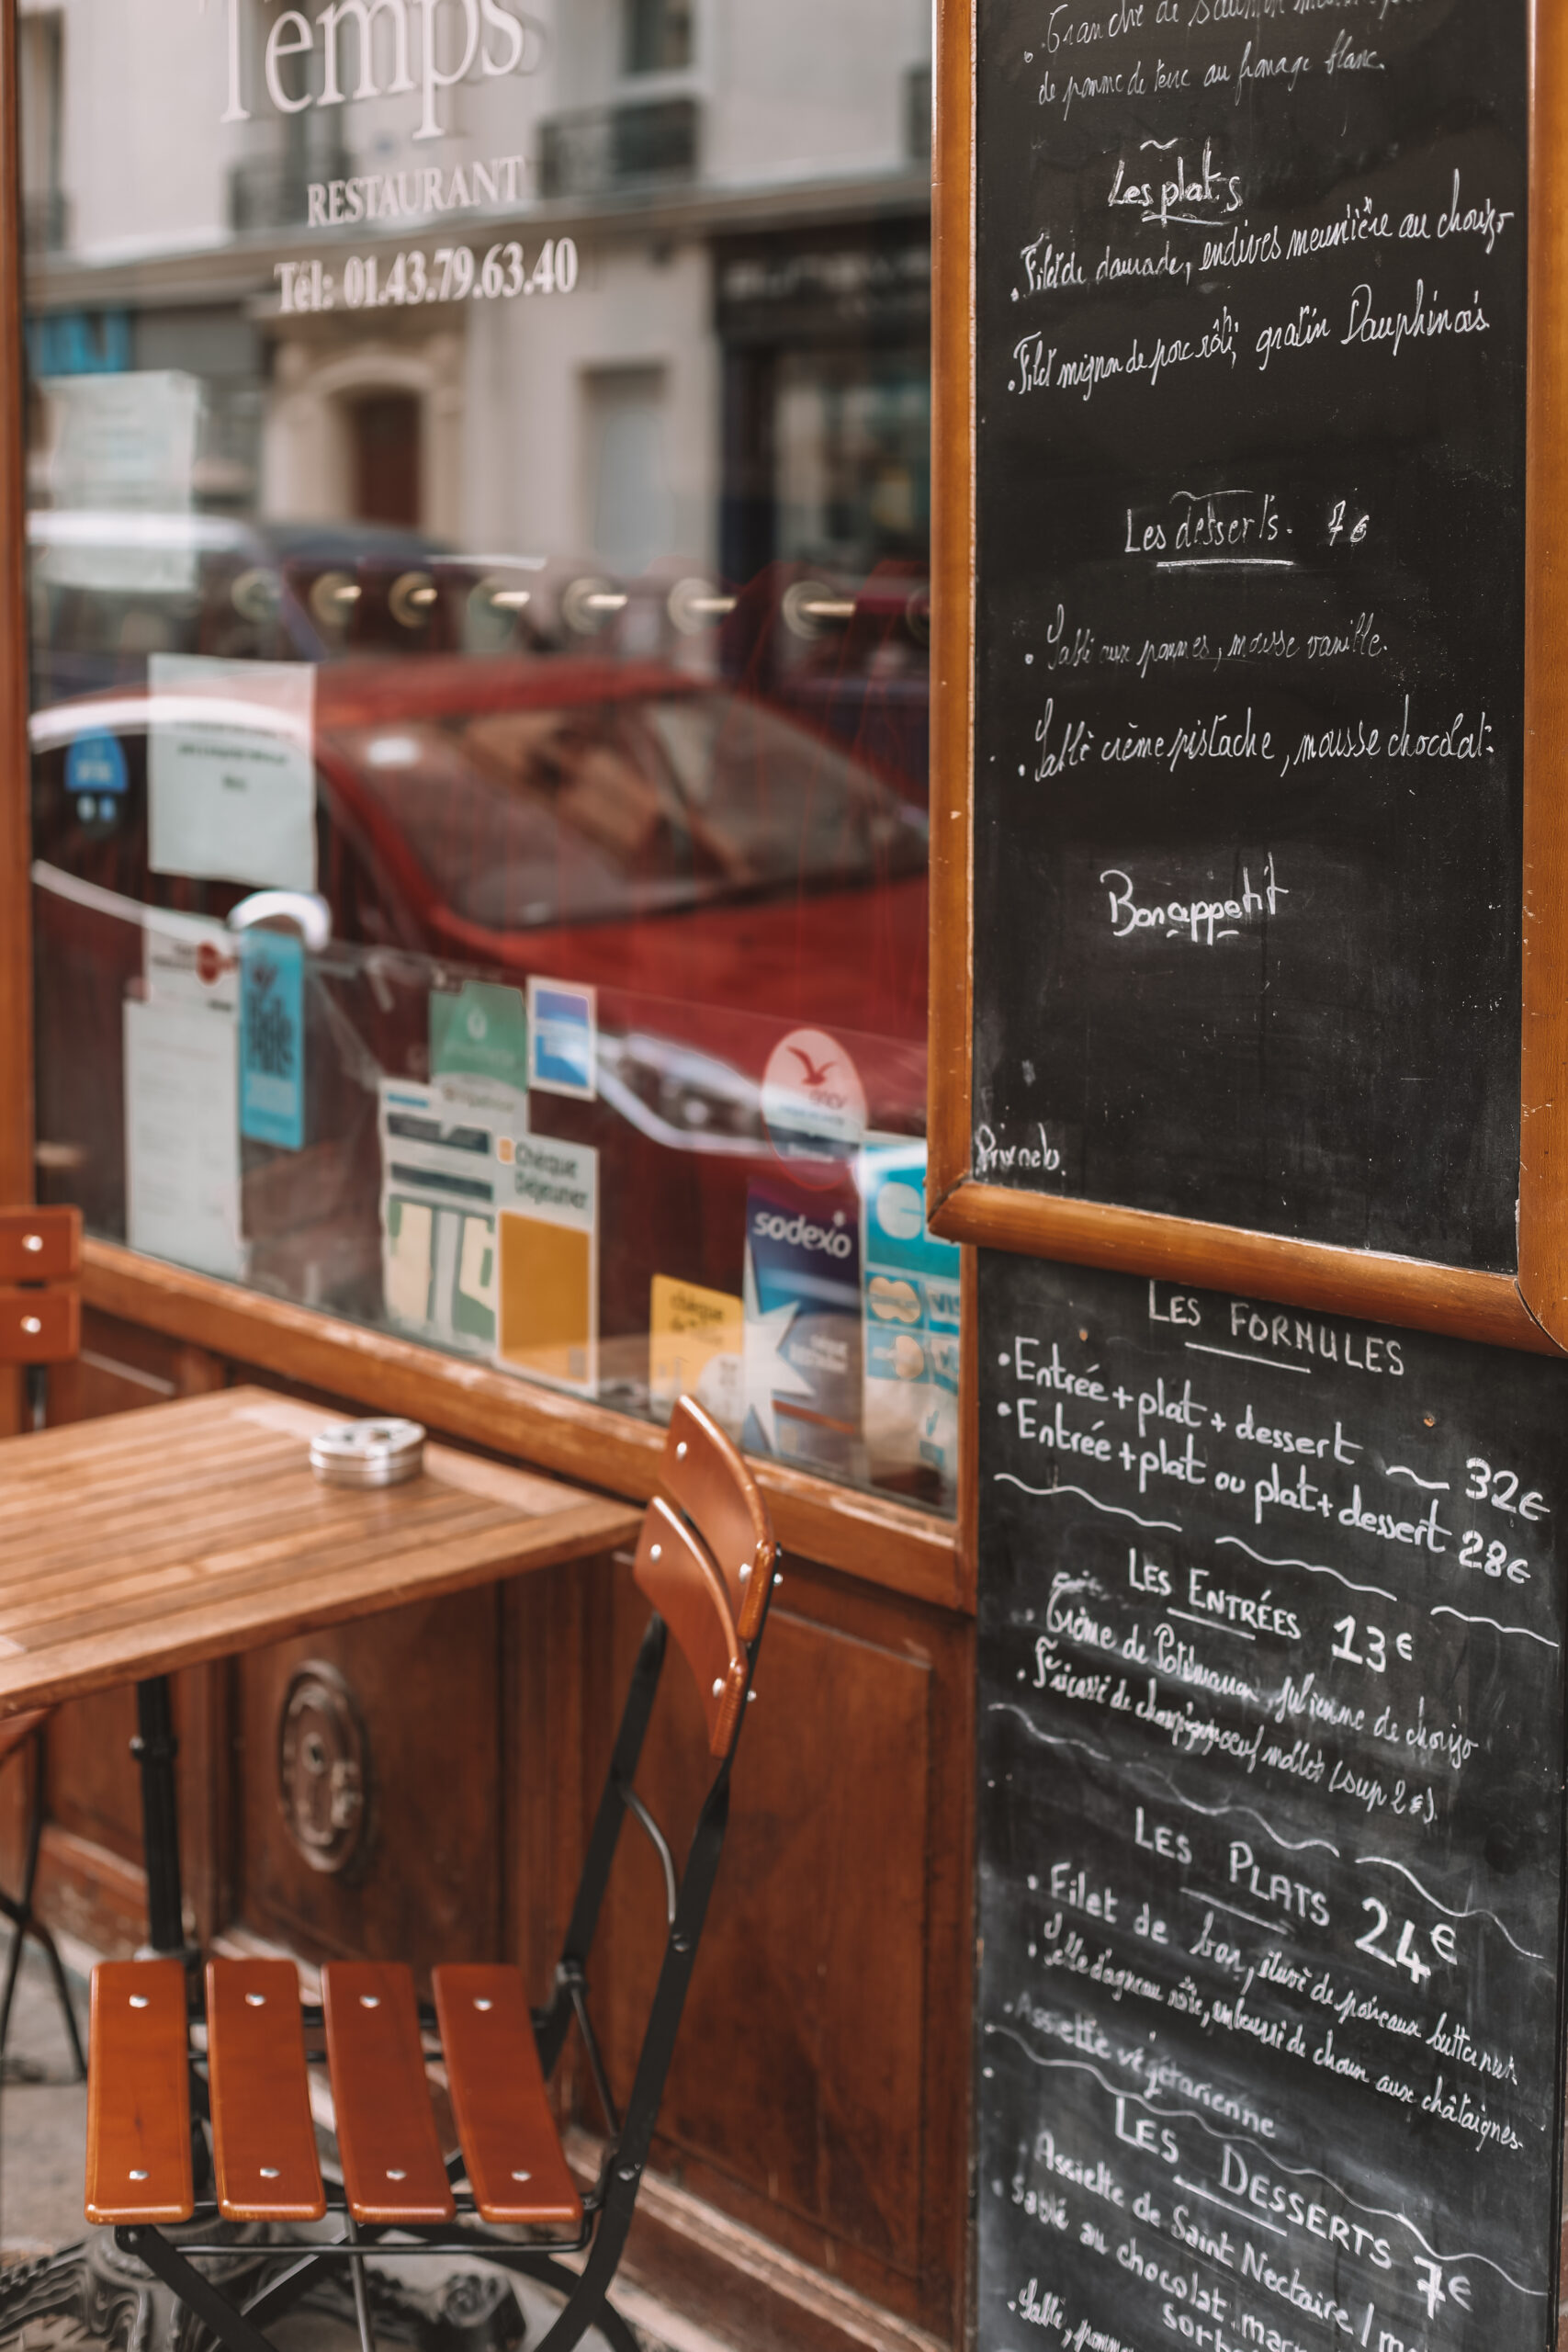 Temps
RESTAURANT
Tél: 01.43.79.63.40
Chèque
Déjeuner
sodexo
chèque
de pomme de terre au fromage blanc.
Les plats
. Filet de daurade, endives meunière au chorizo
. Filet mignon de porc rôti, gratin Dauphinois
Les desserts. 7€
. Sablé aux pommes, mousse vanille.
. Sablé crème pistache, mousse chocolat.
Bon appetit
Prix nets.
LES FORMULES
• Entrée + plat + dessert 32€
• Entrée + plat ou plat + dessert 28€
LES ENTRÉES 13€
. Crème de Potimarron, julienne de chorizo
. Fricassé de champignons, oeuf mollet (sup 2€).
LES PLATS 24€
• Filet de bar, étuvé de poireaux butternut
• Selle d'agneau rôtie, embeurré de choux aux châtaignes.
• Assiette végétarienne
LES DESSERTS 7€
• Assiette de Saint Nectaire /
• Sablé au chocolat,